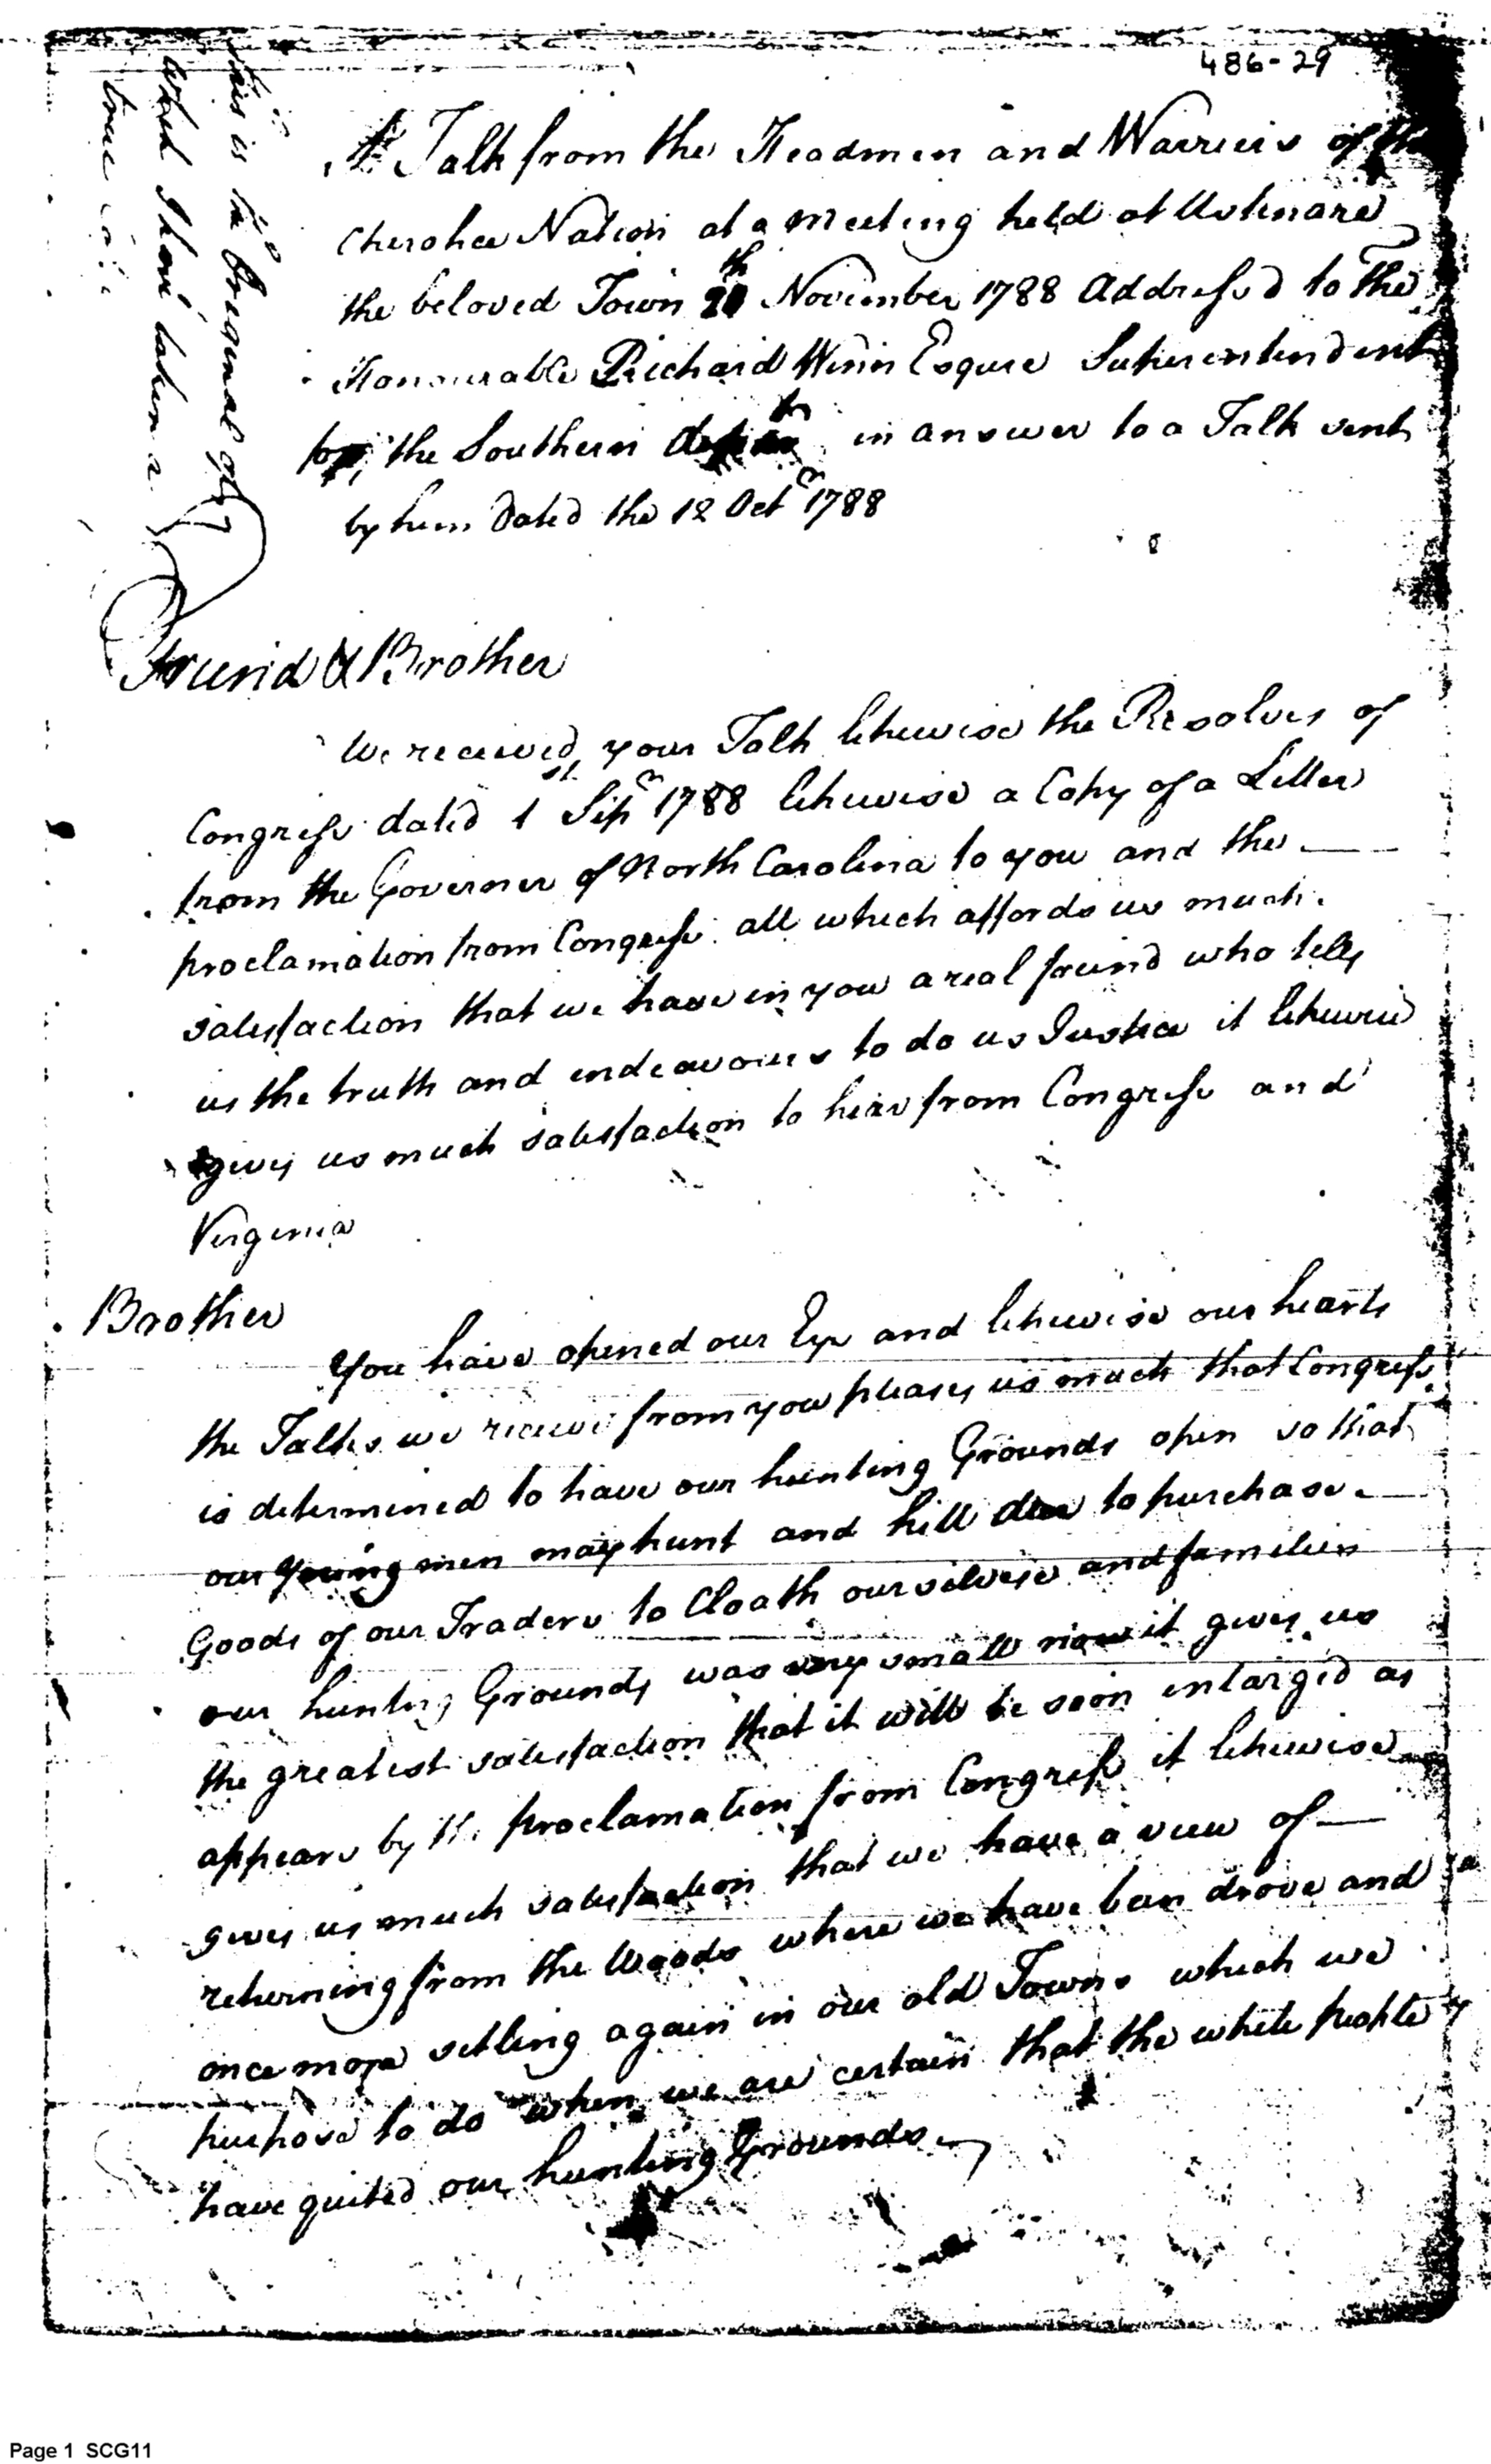 486-29
This is the Original of
which I have taken a
true
A Talk from the Headmen and Warriers of the
Cherokee Nation at a Meeting held at Ustinare
the beloved Town November 1788 Addressed to the
Honourable Richard Winn Esqure Superintendent
for the Southern in answer to a Talk sent
by him Dated the 12 Octr 1788
Freind & Brother
We received your Talk likewise the Resolves of
Congress dated 1st Sepr 1788 likewise a Copy of a Letter
from the Governer of North Carolina to you and the
proclamation from Congress all which affords us much
satisfaction that we have in you a real freind who tells
us the truth and endeavours to do us Justice it likewise
gives us much satisfaction to hear from Congress and
Virginia
Brother
You have opened our Eys and likewise our hearts
the Talks we receive from you pleases us much that Congress
is determined to have our hunting Grounds open so that
our young men may hunt and kill dear to purchase
Goods of our Traders to Cloath ourselvese and familien
our hunting Grounds was very small now it gives us
the greatest satisfaction that it will be soon inlarged as
appears by the proclamation from Congress it likewise
gives us much satisfaction that we have a view of
returning from the Woods where we have ben drove and
once more setling again in our old Towns which we
purpose to do when we are certain that the white people
have quited our hunting Grounds
Page 1 SCG11